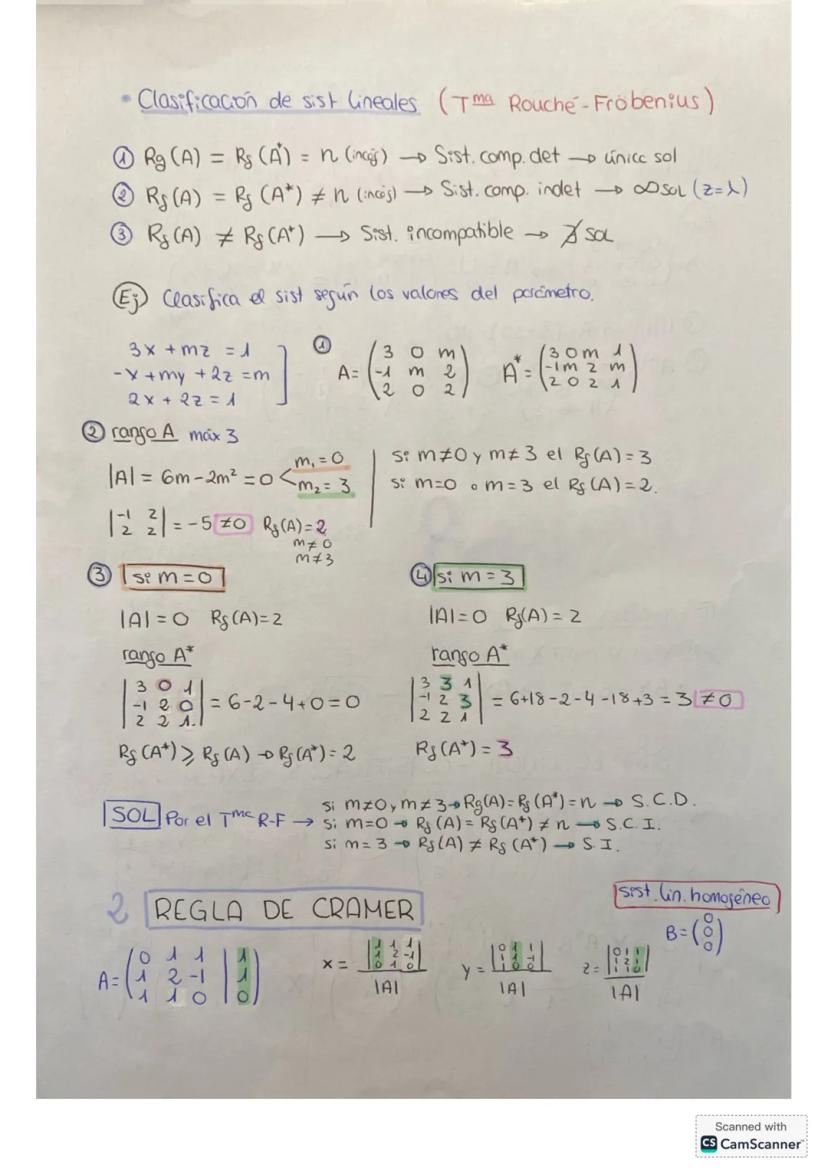 • Clasificación de sist lineales (Tma Rouché-Fröbenius)
① Rg(A) = Rg(A*) = n (incógs) → Sist. comp. det → única sol
② Rg(A) = Rg(A*) ≠ n (incógs) → Sist. comp. indet → ∞ sol (z=λ)
③ Rg(A) ≠ Rg(A*) → Sist. incompatible → ∄ sol
Ej) Clasifica el sist según los valores del parámetro.
3x + mz = 1
-x + my + 2z = m
2x + 2z = 1
①
A = (3 0 m
-1 m 2
2 0 2)
A* = (3 0 m 1
-1 m 2 m
2 0 2 1)
② rango A máx 3
|A| = 6m - 2m² = 0 < m₁ = 0
m₂ = 3
|-1 2
2 2| = -5 ≠0 Rg(A) = 2
m ≠ 0
m ≠ 3
si m≠0 y m≠3 el Rg(A) = 3
si m=0 o m=3 el Rg(A) = 2.
③ si m = 0
|A| = 0 Rg(A) = 2
rango A*
|3 0 1
-1 2 0
2 2 1| = 6-2-4+0 = 0
Rg(A*) ⩾ Rg(A) → Rg(A*) = 2
④ si m = 3
|A| = 0 Rg(A) = 2
rango A*
|3 3 1
-1 2 3
2 2 1| = 6+18-2-4-18+3 = 3 ≠0
Rg(A*) = 3
SOL Por el Tma R-F →
si m≠0 y m≠3 → Rg(A) = Rg(A*) = n → S.C.D.
si m=0 → Rg(A) = Rg(A*) ≠ n → S.C.I.
si m=3 → Rg(A) ≠ Rg(A*) → S.I.
2 REGLA DE CRAMER
sist. lin. homogéneo
B = (0
0
0)
A = (0 1 1 | 1
1 2 -1 | 1
1 1 0 | 0)
x = |1 1 1
1 2 -1
0 1 0|
|A|
y = |0 1 1
1 1 -1
1 0 0|
|A|
z = |0 1 1
1 2 1
1 1 0|
|A|
Scanned with
CS CamScanner